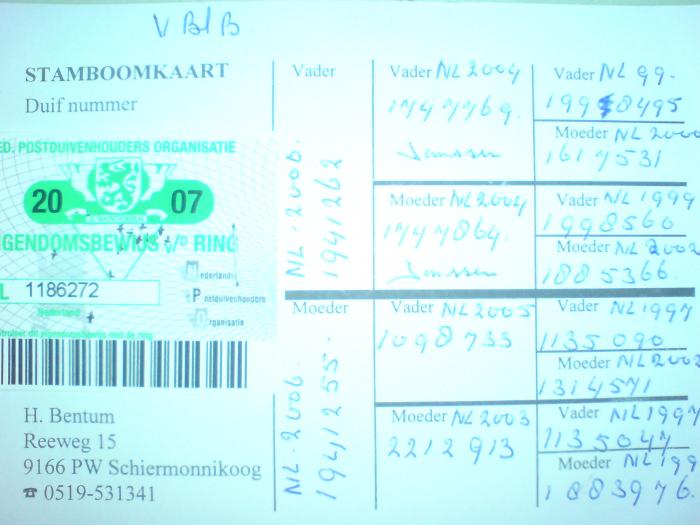 V Bl B
STAMBOOMKAART
Duif nummer
ED. POSTDUIVENHOUDERS ORGANISATIE
20 07
GENDOMSBEWIJS V/D RING
L 1186272
Nederland
Nederlandse
Postduivenhouders
Organisatie
H. Bentum
Reeweg 15
9166 PW Schiermonnikoog
☎ 0519-531341
Vader
NL. 2006.
1941262
Moeder
NL. 2006.
1941255.
Vader NL 2004
1747769.
Janssen
Moeder NL 2004
1747864.
Janssen
Vader NL 2005
1098733
Moeder NL 2003
2212913
Vader NL 99-
19918495
Moeder NL 2000
1617531
Vader NL 1999
1998560
Moeder NL 2002
1885366.
Vader NL 1997
1135090
Moeder NL 2002
1314571
Vader NL 1997
1135047
Moeder NL 199
1883976.